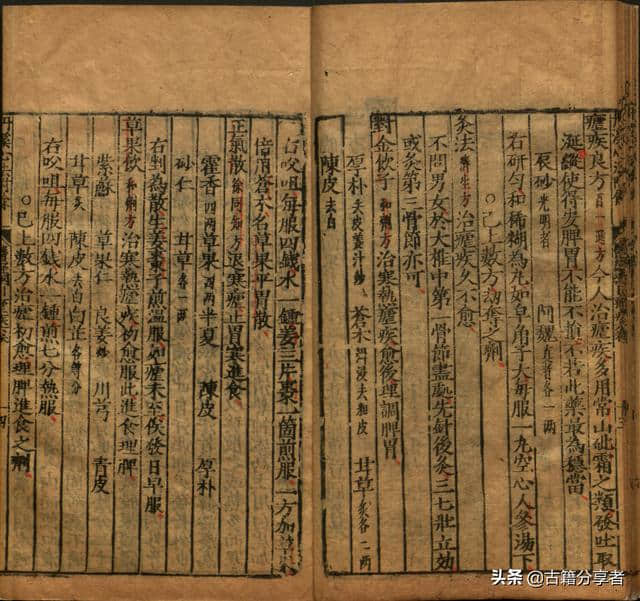 瘧疾良方百一選方今人治瘧疾多用常山砒霜之類發吐取
涎縱使得安脾胃不能不損不若此藥最為穩當
辰砂光明者 阿魏真者各一兩
右研勻和稀糊為丸如皂角子大每服一丸空心人參湯下
○已上數方劫奪之劑
灸法濟生方治瘧疾久不愈
不問男女於大椎中第一骨節盡處先針後灸三七壯立効
或灸第三骨節亦可
對金飲子和劑方治寒熱瘧疾愈後理調脾胃
厚朴去皮姜汁炒 蒼朮泔浸去粗皮 甘草炙各二兩
陳皮去白
右㕮咀每服四錢水一鍾姜三片棗一箇煎服一方加草果
倍蒼朮名草果平胃散
正氣散徐同知方退寒瘧正胃寒進食
藿香四兩草果四兩半夏 陳皮 厚朴
砂仁 甘草各一兩
右剉為散生姜棗子煎温服如瘧未至俟發日早服
草果飲和劑方治寒熱瘧疾初愈服此進食理脾
紫蘇 草果仁 良姜 川芎 青皮
甘草 陳皮去白白芷各等分
右㕮咀每服四錢水一鍾煎七分熱服
○已上數方治瘧疾初愈理脾進食之劑
頭条 @古籍分享者